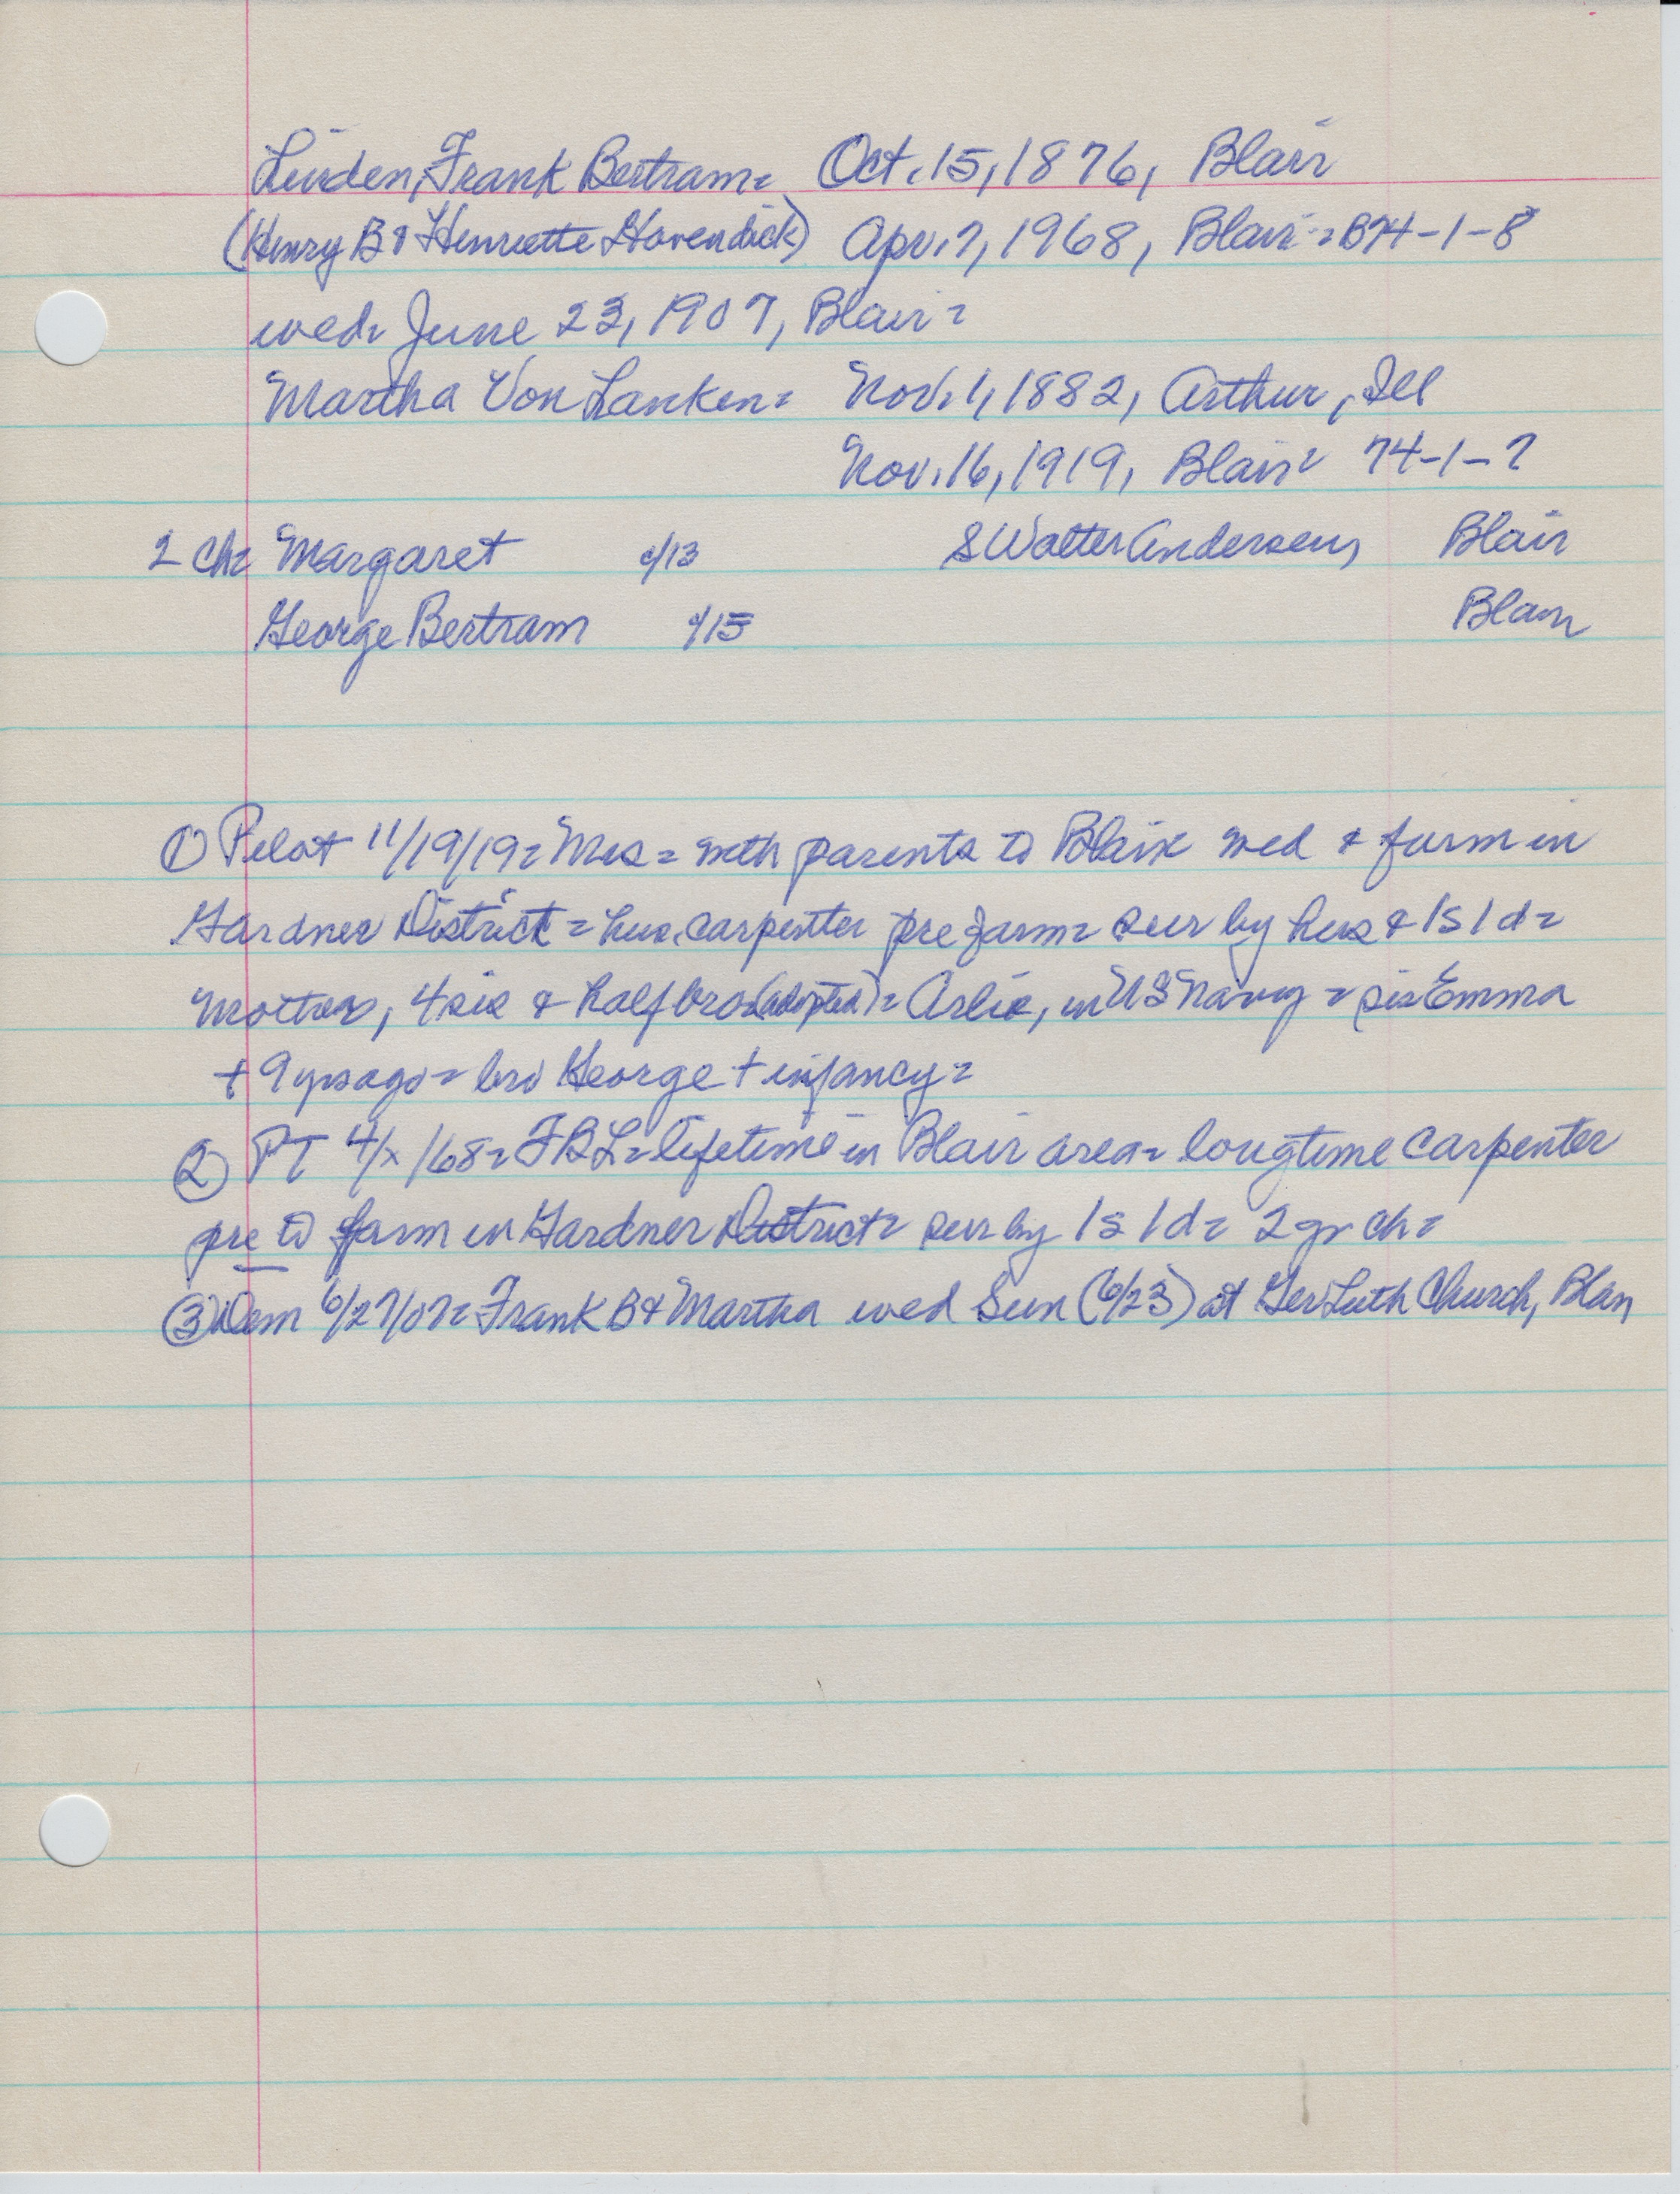 Linden, Frank Bertram= Oct. 15, 1876, Blair
(Henry B & Henriette Hovendick) Apr. 7, 1968, Blair= B74-1-8
wed= June 23, 1907, Blair=
Martha Von Lanken= Nov. 1, 1882, Arthur, Ill
Nov. 16, 1919, Blair= 74-1-7
2 Ch= Margaret c/13 S Walter Andersen, Blair
George Bertram c/15 Blair
① Pilot 11/19/19= Mrs= with parents to Blair wed & farm in
Gardner District= hus. carpenter pre farm= sur by hus & 1s 1d=
mother, 4 sis & half bro (adopted)= Arlie, in US Navy= sis Emma
+ 9 yrs ago= bro George + infancy=
② PT 4/x/68= FBL= lifetime in Blair area= longtime carpenter
pre to farm in Gardner District= sur by 1s 1d= 2 gr ch=
③ Dem 6/27/07= Frank B & Martha wed Sun (6/23) at Ger Luth Church, Blair